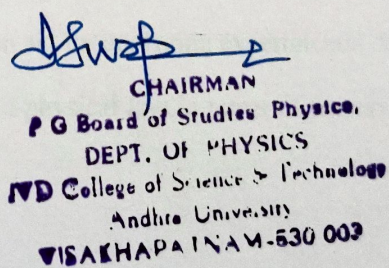 CHAIRMAN
P G Board of Studies Physics.
DEPT. OF PHYSICS
JVD College of Science & Technology
Andhra University
VISAKHAPATNAM-530 003